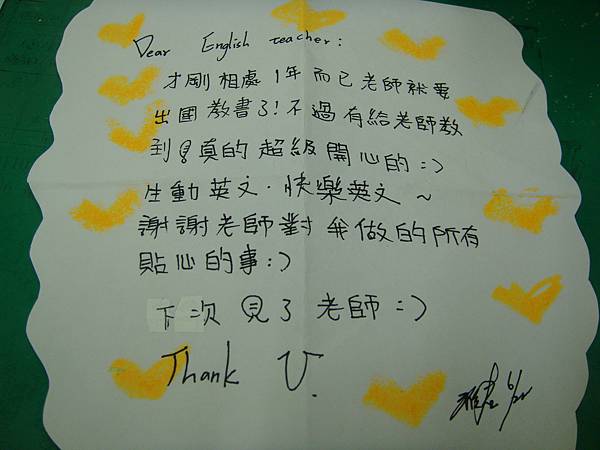 Dear English teacher:
才剛相處1年而已老師就要
出國教書了!不過有給老師教
到!真的超級開心的:)
生動英文.快樂英文~
謝謝老師對我做的所有
貼心的事:)
下次見了老師=)
Thank U.
6/22